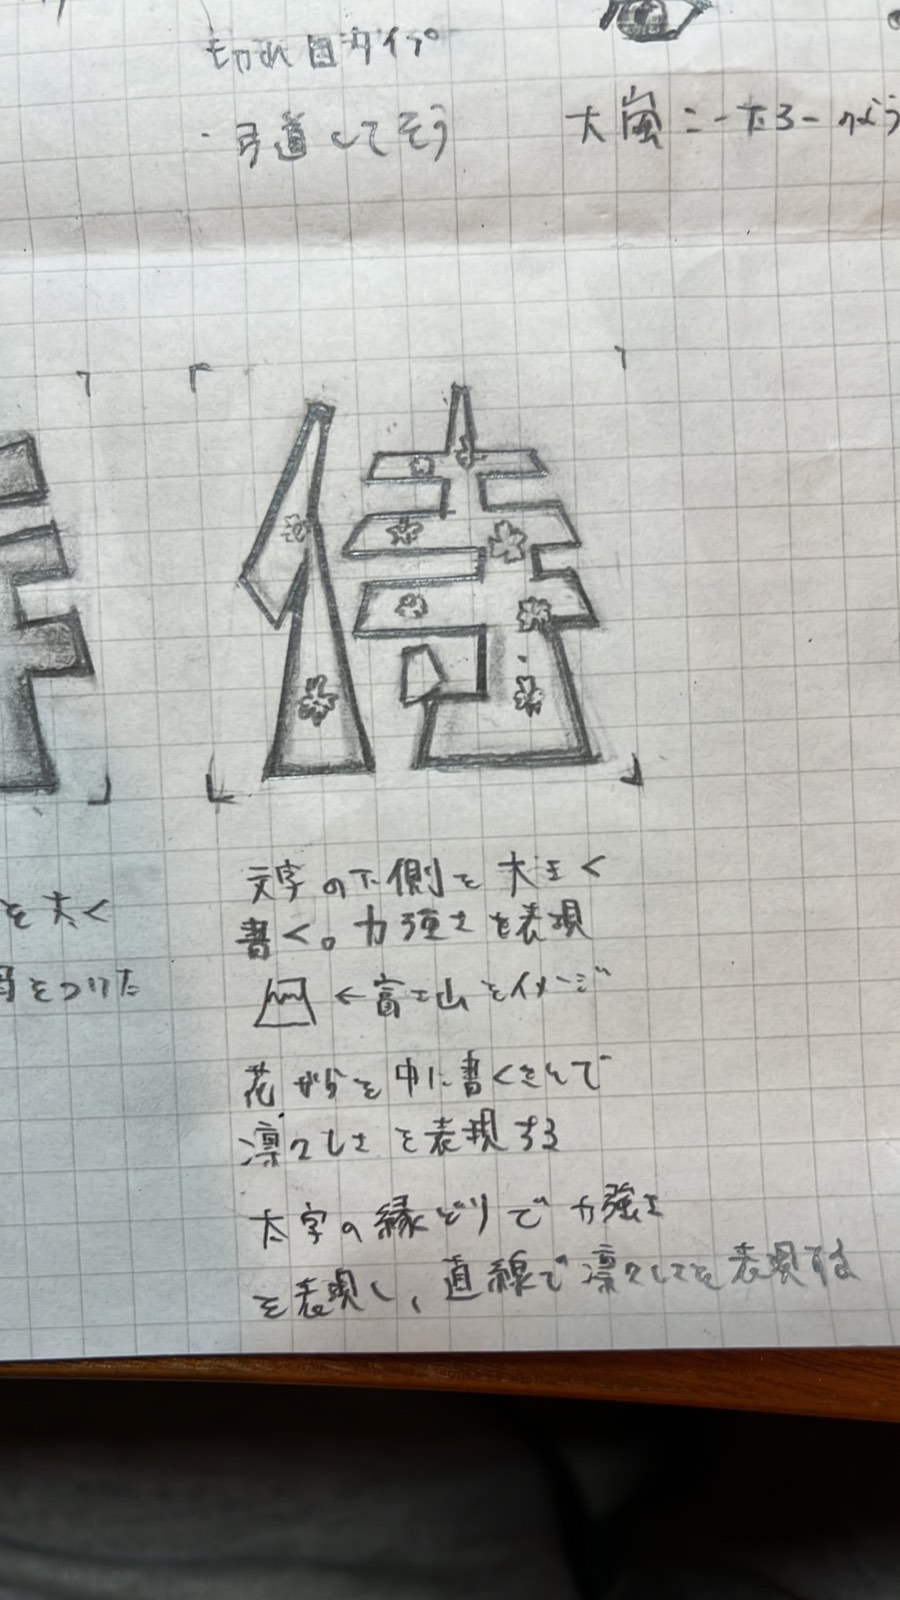 切れ目タイプ
・弓道してそう
大嵐こーたろーのよう
侍
を太く
をつけた
文字の下側を大きく
書く。力強さを表現
←富士山をイメージ
花がらを中に書くことで
凛々しさを表現する
太字の縁どりで力強さ
を表現し、直線で凛々しさを表現する